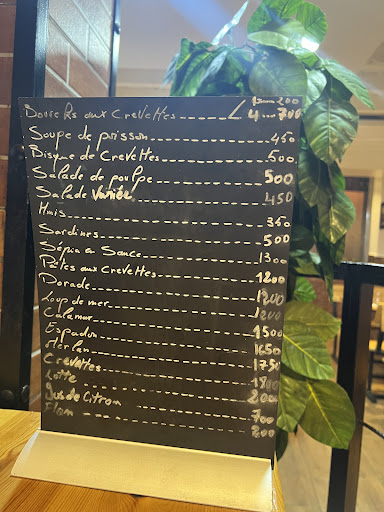 Boureks aux Crevettes 1 200
4 700
Soupe de poisson 450
Bisque de Crevettes 500
Salade de poulpe 500
Salade Variée 450
Hmis 350
Sardines 500
Sépia en Sauce 1300
Pâtes aux Crevettes 1200
Dorade 1200
Loup de mer 1200
Calamar 1500
Espadon 1650
Merlan 1750
Crevettes 1800
Lotte 2000
Jus de Citron 700
Flan 200